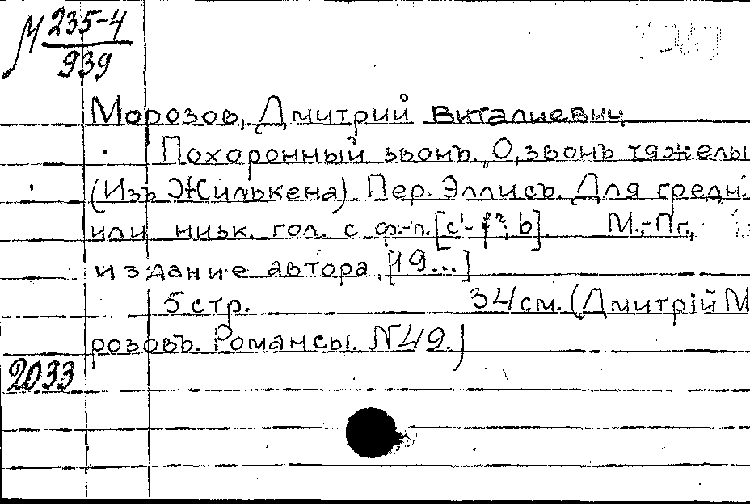 М 235-4
939
Морозов, Дмитрий Виталиевич
Похоронный звонъ. "О, звонъ тяжелы
(Изъ Жилькена). Пер. Эллисъ. Для средн.
или низк. гол. с ф.-п. [c'-f²; b]. М.-Пг.,
издание автора, [19...]
5 стр. 34 см. (Дмитрій М
розовъ. Романсы. №49.)
2033